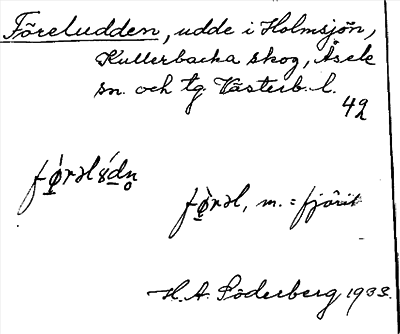 Föreludden, udde i Holmsjön,
Kullerbacka skog, Åsele
sn. och tg. Västerb. l.
42
fø̀rəl, m. = fjäril
H. A. Söderberg 1933.